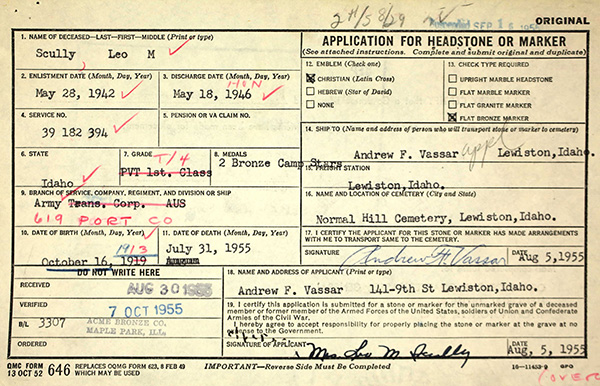 2H/58/29
Received SEP 16 1955
ORIGINAL
1. NAME OF DECEASED—LAST—FIRST—MIDDLE (Print or type)
Scully, Leo M
APPLICATION FOR HEADSTONE OR MARKER
(See attached instructions. Complete and submit original and duplicate)
2. ENLISTMENT DATE (Month, Day, Year)
May 28, 1942
3. DISCHARGE DATE (Month, Day, Year)
HON
May 18, 1946
12. EMBLEM (Check one)
CHRISTIAN (Latin Cross)
HEBREW (Star of David)
NONE
13. CHECK TYPE REQUIRED
UPRIGHT MARBLE HEADSTONE
FLAT MARBLE MARKER
FLAT GRANITE MARKER
FLAT BRONZE MARKER
4. SERVICE NO.
39 182 394
5. PENSION OR VA CLAIM NO.
14. SHIP TO (Name and address of person who will transport stone or marker to cemetery)
Andrew F. Vassar appl Lewiston, Idaho.
6. STATE
Idaho
7. GRADE
T/4
PVT 1st. Class
8. MEDALS
2 Bronze Camp Stars
15. FREIGHT STATION
Lewiston, Idaho.
9. BRANCH OF SERVICE, COMPANY, REGIMENT, AND DIVISION OR SHIP
Army Trans. Corp. AUS
619 PORT CO
16. NAME AND LOCATION OF CEMETERY (City and State)
Normal Hill Cemetery, Lewiston, Idaho.
10. DATE OF BIRTH (Month, Day, Year)
1913
October 16, 1919
11. DATE OF DEATH (Month, Day, Year)
July 31, 1955
17. I CERTIFY THE APPLICANT FOR THIS STONE OR MARKER HAS MADE ARRANGEMENTS
WITH ME TO TRANSPORT SAME TO THE CEMETERY.
SIGNATURE
Andrew F. Vassar
Aug 5, 1955
DO NOT WRITE HERE
RECEIVED
AUG 30 1955
VERIFIED
7 OCT 1955
B/L 3307
ACME BRONZE CO.
MAPLE PARK, ILL.
ORDERED
18. NAME AND ADDRESS OF APPLICANT (Print or type)
Andrew F. Vassar 141-9th St Lewiston, Idaho.
19. I certify this application is submitted for a stone or marker for the unmarked grave of a deceased
member or former member of the Armed Forces of the United States, soldiers of Union and Confederate
Armies of the Civil War.
I hereby agree to accept responsibility for properly placing the stone or marker at the grave at no
expense to the Government.
SIGNATURE OF APPLICANT
Mrs. Leo M Scully
Aug, 5, 1955
QMC FORM
13 OCT 52 646
REPLACES QMC FORM 623, 8 FEB 49
WHICH MAY BE USED
IMPORTANT—Reverse Side Must be Completed
16—11453-9 GPO
(OVER)